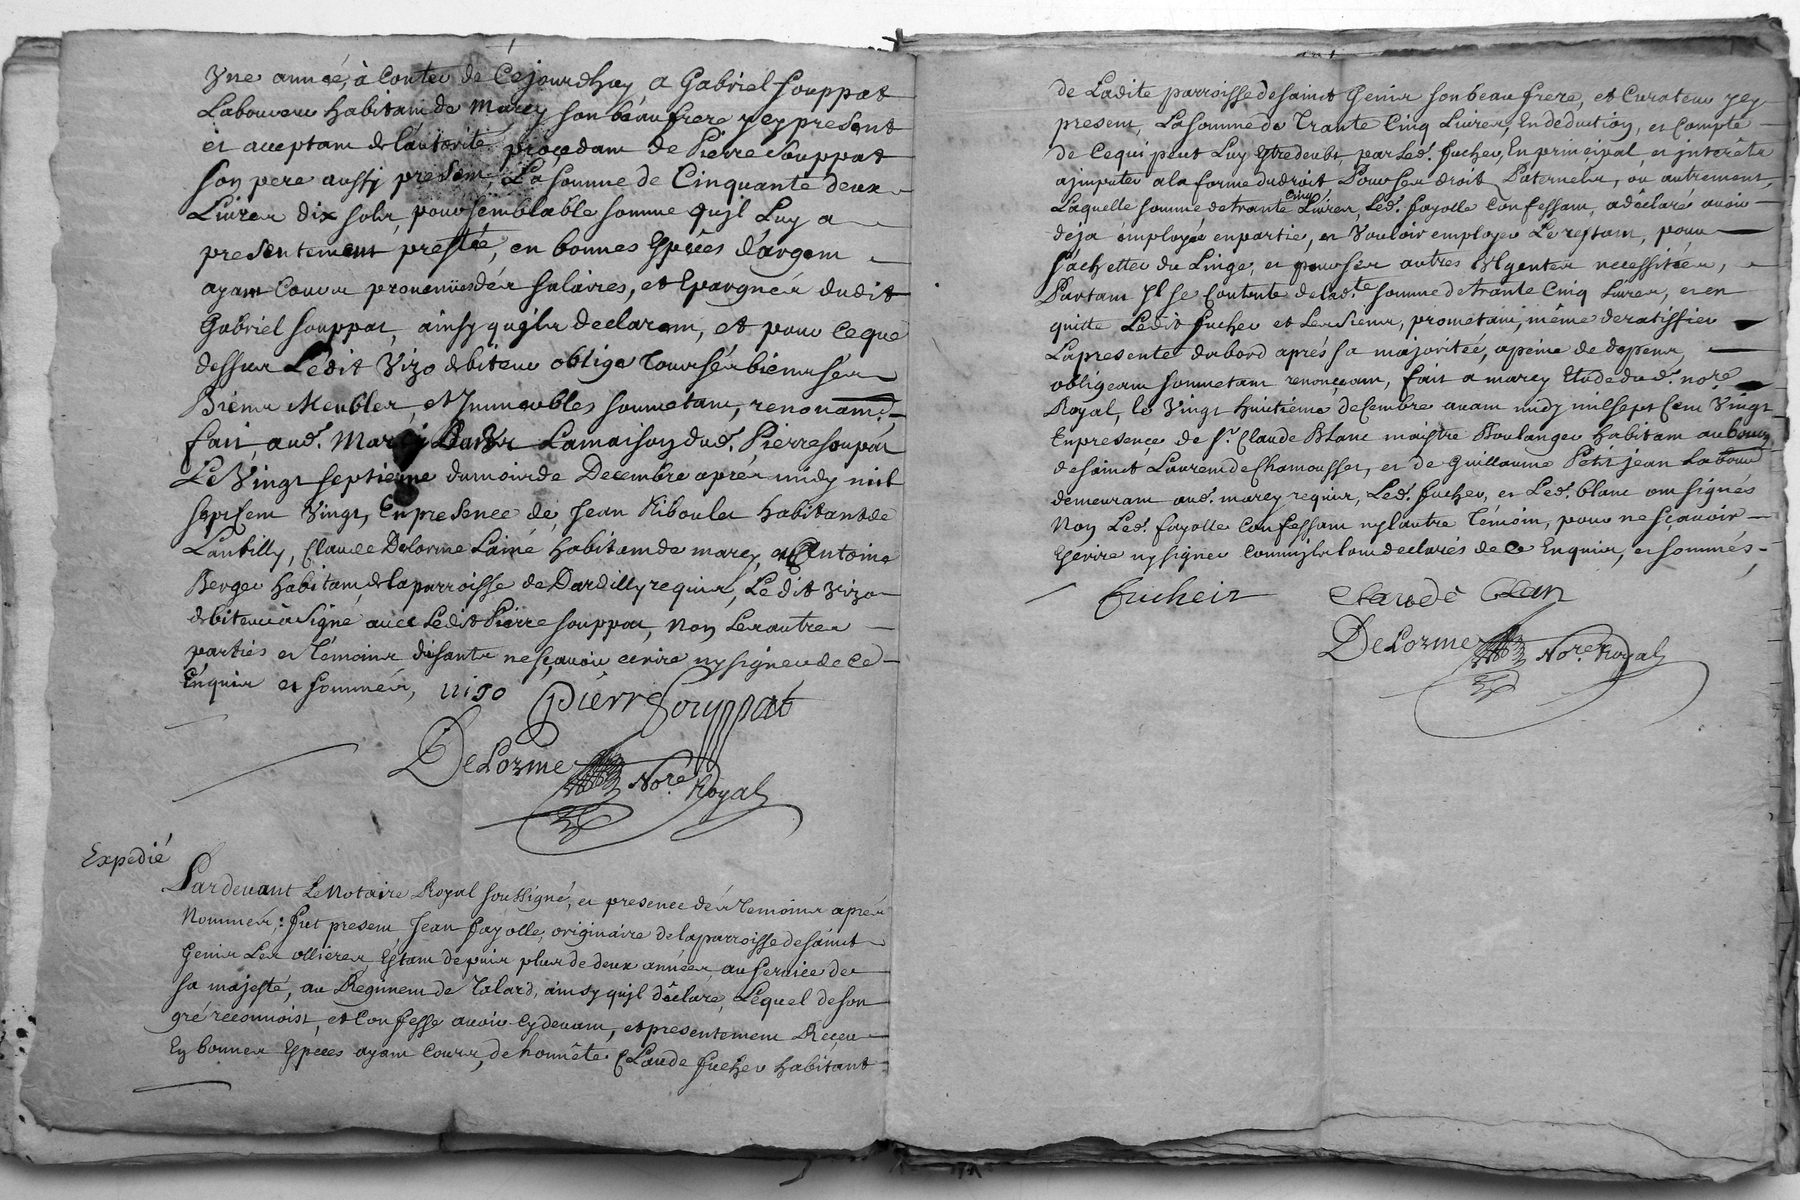 Vne année, à Conter de Cejourdhuy, a Gabriel Souppat
Laboureur habitant de Marcy son béaufrere ycy present
et acceptant de l'autorité procedant de Pierre Souppat
son pere aussy present, La somme de Cinquante deux
Livres dix sols, pour semblable somme qu'jl Luy a
presentement prestée, en bonnes Espéces d'argent
ayant Cours provenües dés salaires, et Epargnés dudit
Gabriel Souppat, ainsy qu'jls declarent, et pour ceque
dessus Lédit Vizo debiteur oblige tous sés biens sés
Biéns Meubles, et Immeubles soumetant, renonant.
fait, aud. Marcy Dans La maison dud. Pierre Soupat
Le Vingt septiéme du mois de Decembre aprés midy mil
sept Cent Vingt, En presence de Jean Riboulet habitant de
Lantilly, Claude Delorme Lainé habitant de marcy, et Antoine
Berger habitant de la parroisse de Dardilly requis, Le dit Vizo
debiteur a Signé avec Lédit Pierre Souppat, non Les autres
partiés et témoins disants nesçavoir ecrire ny signer de Ce
Enquis et Sommés, vizo Pièrre Souppat
DeLorme Nore. Royal
Expedié
Pardevant Le Notaire Royal Soussigné, et presence dés temoins aprés
Nommés; fut present Jean fayolle, originaire de la parroisse de saint
Genis Les ollieres, Estant depuis plus de deux années au service de
sa majesté, au Regiment de Talard, ainsy qu'jl déclare, Léquel de son
gré réconnoist, et Confesse avoir Cy devant, et presentement Receu
En bonnes Espéces ayant Cours, de honnête Claude fucher habitant
de Ladite parroisse de saint Genis son beau frere, et Curateur ycy
present, La somme de Trante Cinq Livres, En deduction, et Compte
de Cequi peut Luy Estre deubt par Led. fucher, En principal, et jnterêts
a jmputer a la forme du droit Pour ses droits Paternels, ou autrement,
Laquelle somme de trante Cinq Livres, Led. fayolle Confessant, a déclaré avoir
déja émployée en partie, et Vouloir employer Le restant, pour
s'achetter du Linge, et pour sés autres Urgentes necessitées,
Partant Jl se Contente de lad.te somme de trante Cinq Livres, et en
quitte Lédit fucher et Les siens, prométant, même de ratiffier
La presente dabord aprés sa majoritée, apeine de dépens,
obligeant soumetant renonçant, fait a marcy Etude dud. nore.
Royal, le Vingt huitiéme decembre avant midy mil sept Cent Vingt
En presence, de Sr. Claude Blanc maistre Boulanger habitant au bourg
de saint Laurent de Chamousset, et de Guillaume Petit jean Laboureur
demeurant aud. marcy requis, Led. fucher, et Led. blanc ont signés
Non Led. fayolle Confessant ny lautre témoin, pour ne sçavoir
Escrire ny signer Comm'jls l'ont declarés de Ce Enquis, et sommés,
fucheir Claude Blan
DeLorme Nore. Royal